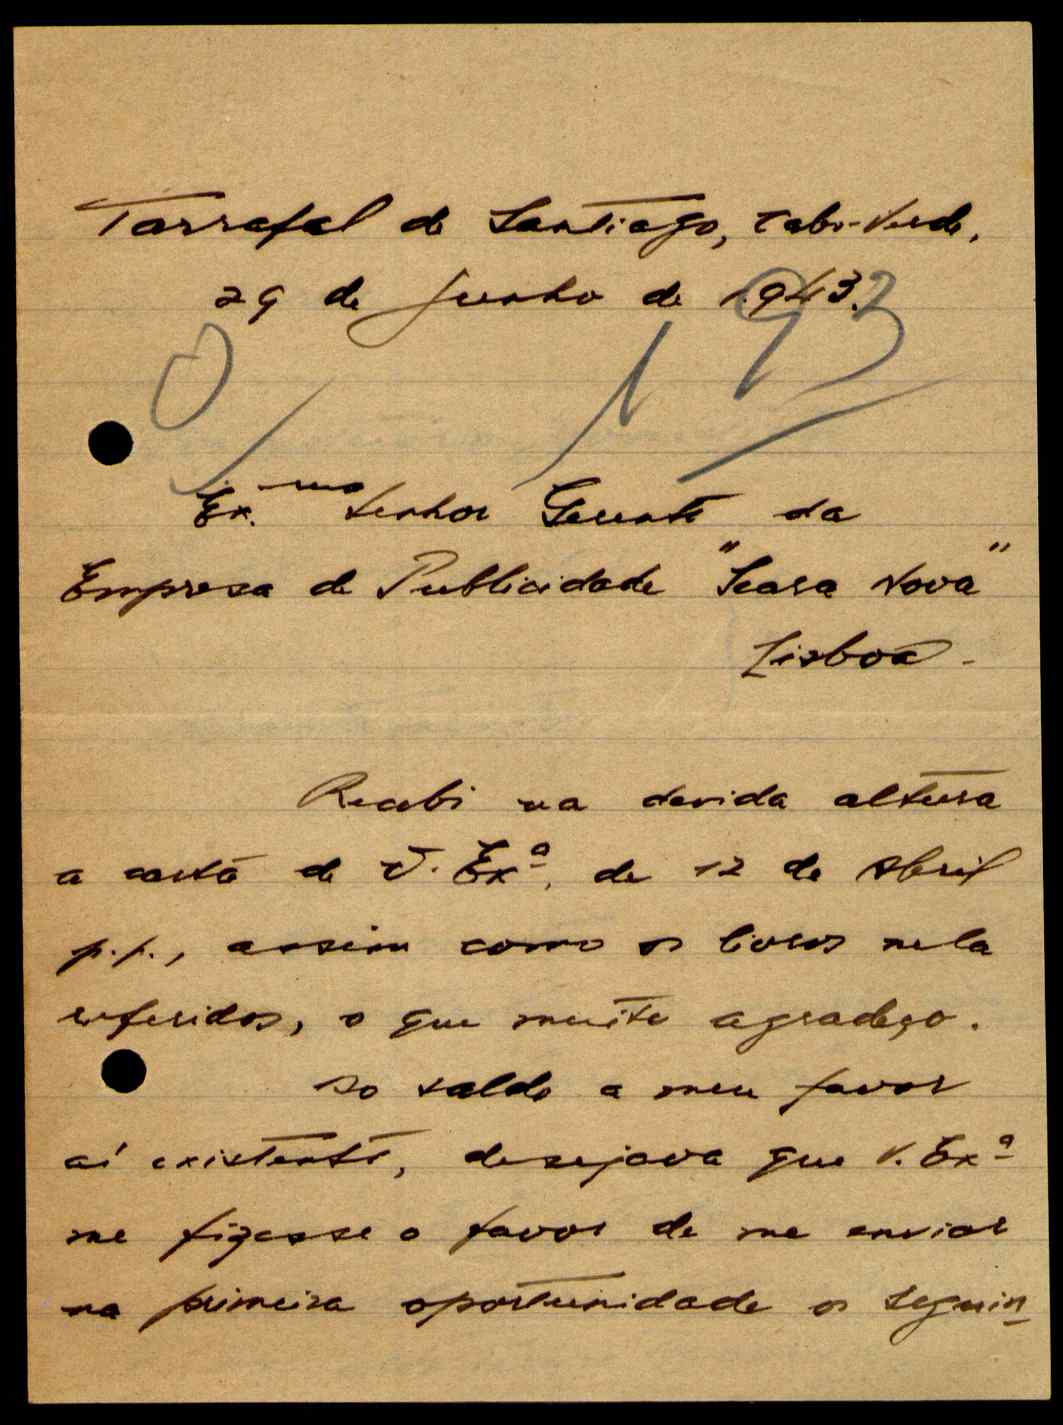 Tarrafal de Santiago, Cabo-Verde,
29 de Junho de 1943.
Ex.mo Senhor Gerente da
Empresa de Publicidade "Seara Nova"
Lisboa -
Recebi na devida altura
a carta de V. Exª. de 12 de Abril
p.p., assim como os livros nela
referidos, o que muito agradeço.
Do saldo a meu favor
aí existente, desejava que V. Exª
me fizesse o favor de me enviar
na primeira oportunidade os seguin